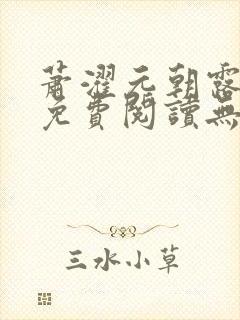 蕭濯元朝露
免費閱讀無
三水小草